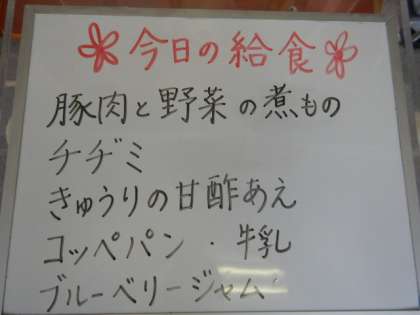 今日の給食
豚肉と野菜の煮もの
チヂミ
きゅうりの甘酢あえ
コッペパン・牛乳
ブルーベリージャム